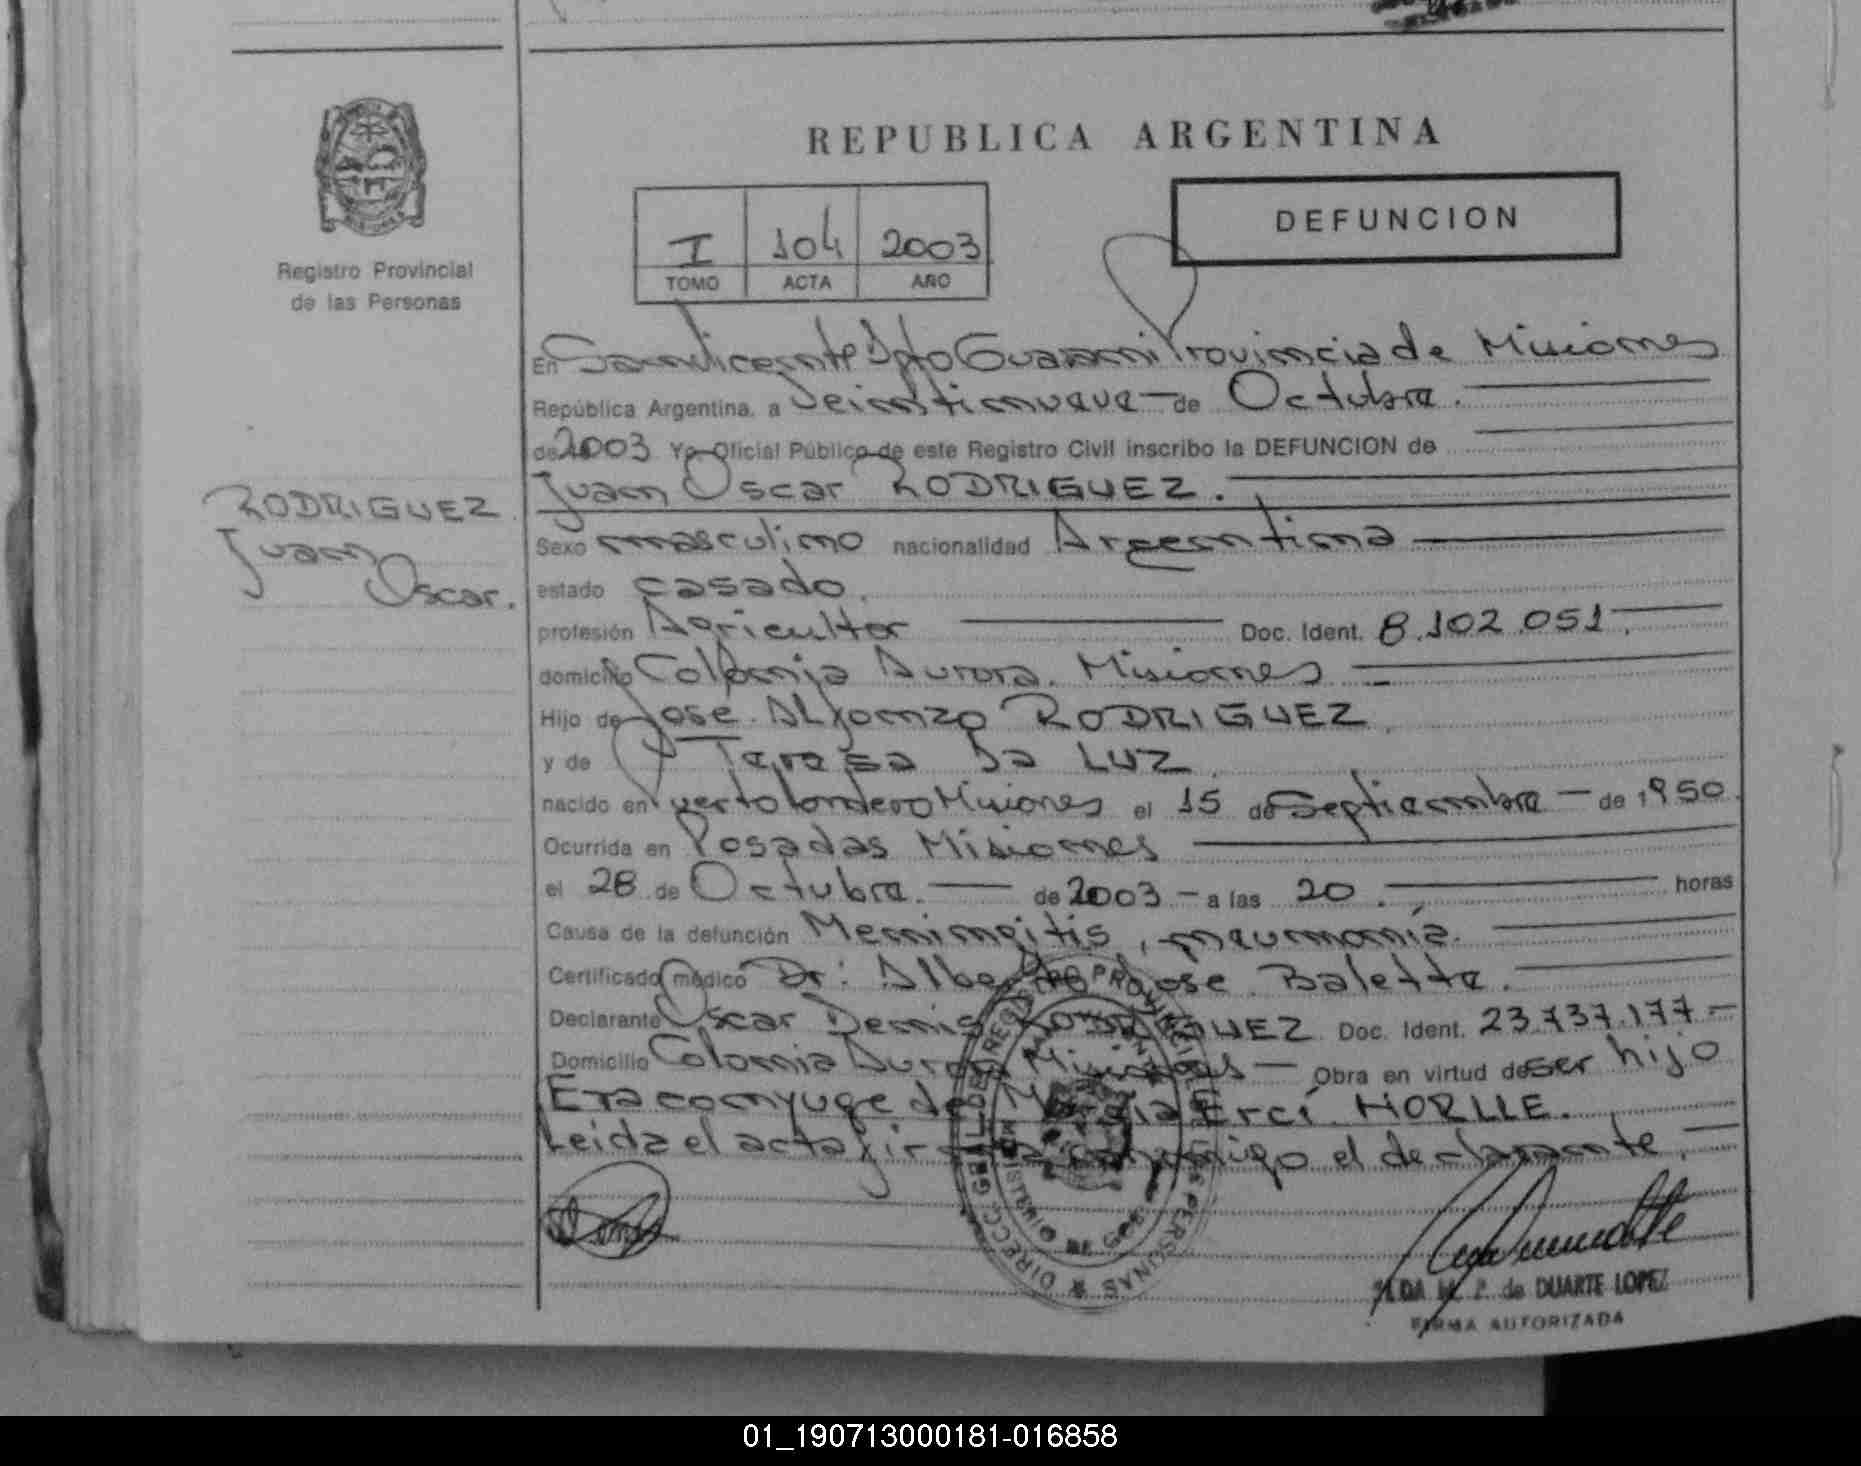 REPUBLICA ARGENTINA
DEFUNCION
I 104 2003
TOMO ACTA AÑO
Registro Provincial
de las Personas
En San Vicente Dpto Guarani Provincia de Misiones
República Argentina, a Veintinueve — de Octubre.
de 2003 Yo Oficial Público de este Registro Civil inscribo la DEFUNCION de
Juan Oscar RODRIGUEZ.
RODRIGUEZ
Juan
Oscar.
Sexo masculino nacionalidad Argentina
estado casado.
profesión Agricultor Doc. Ident. 8.102.051.
domicilio Colonia Aurora. Misiones
Hijo de Jose Alfonzo RODRIGUEZ
y de Teresa Da LUZ.
nacido en Puerto Londero Misiones el 15 de Septiembre — de 1950.
Ocurrida en Posadas Misiones
el 28 de Octubre. — de 2003 — a las 20. horas
Causa de la defunción Meningitis, pneumonía.
Certificado médico Dr: Alberto Jose Balette.
Declarante Oscar Denis RODRIGUEZ Doc. Ident. 23.737.177 —
Domicilio Colonia Aurora Misiones — Obra en virtud de ser hijo
Era conyuge de Maria Ercí HORLLE.
Leida el acta firma conmigo el declarante.
DIRECC. GRAL. DEL REGISTRO PROVINCIAL DE LAS PERSONAS
DE DUARTE LOPEZ
FIRMA AUTORIZADA
01_190713000181-016858